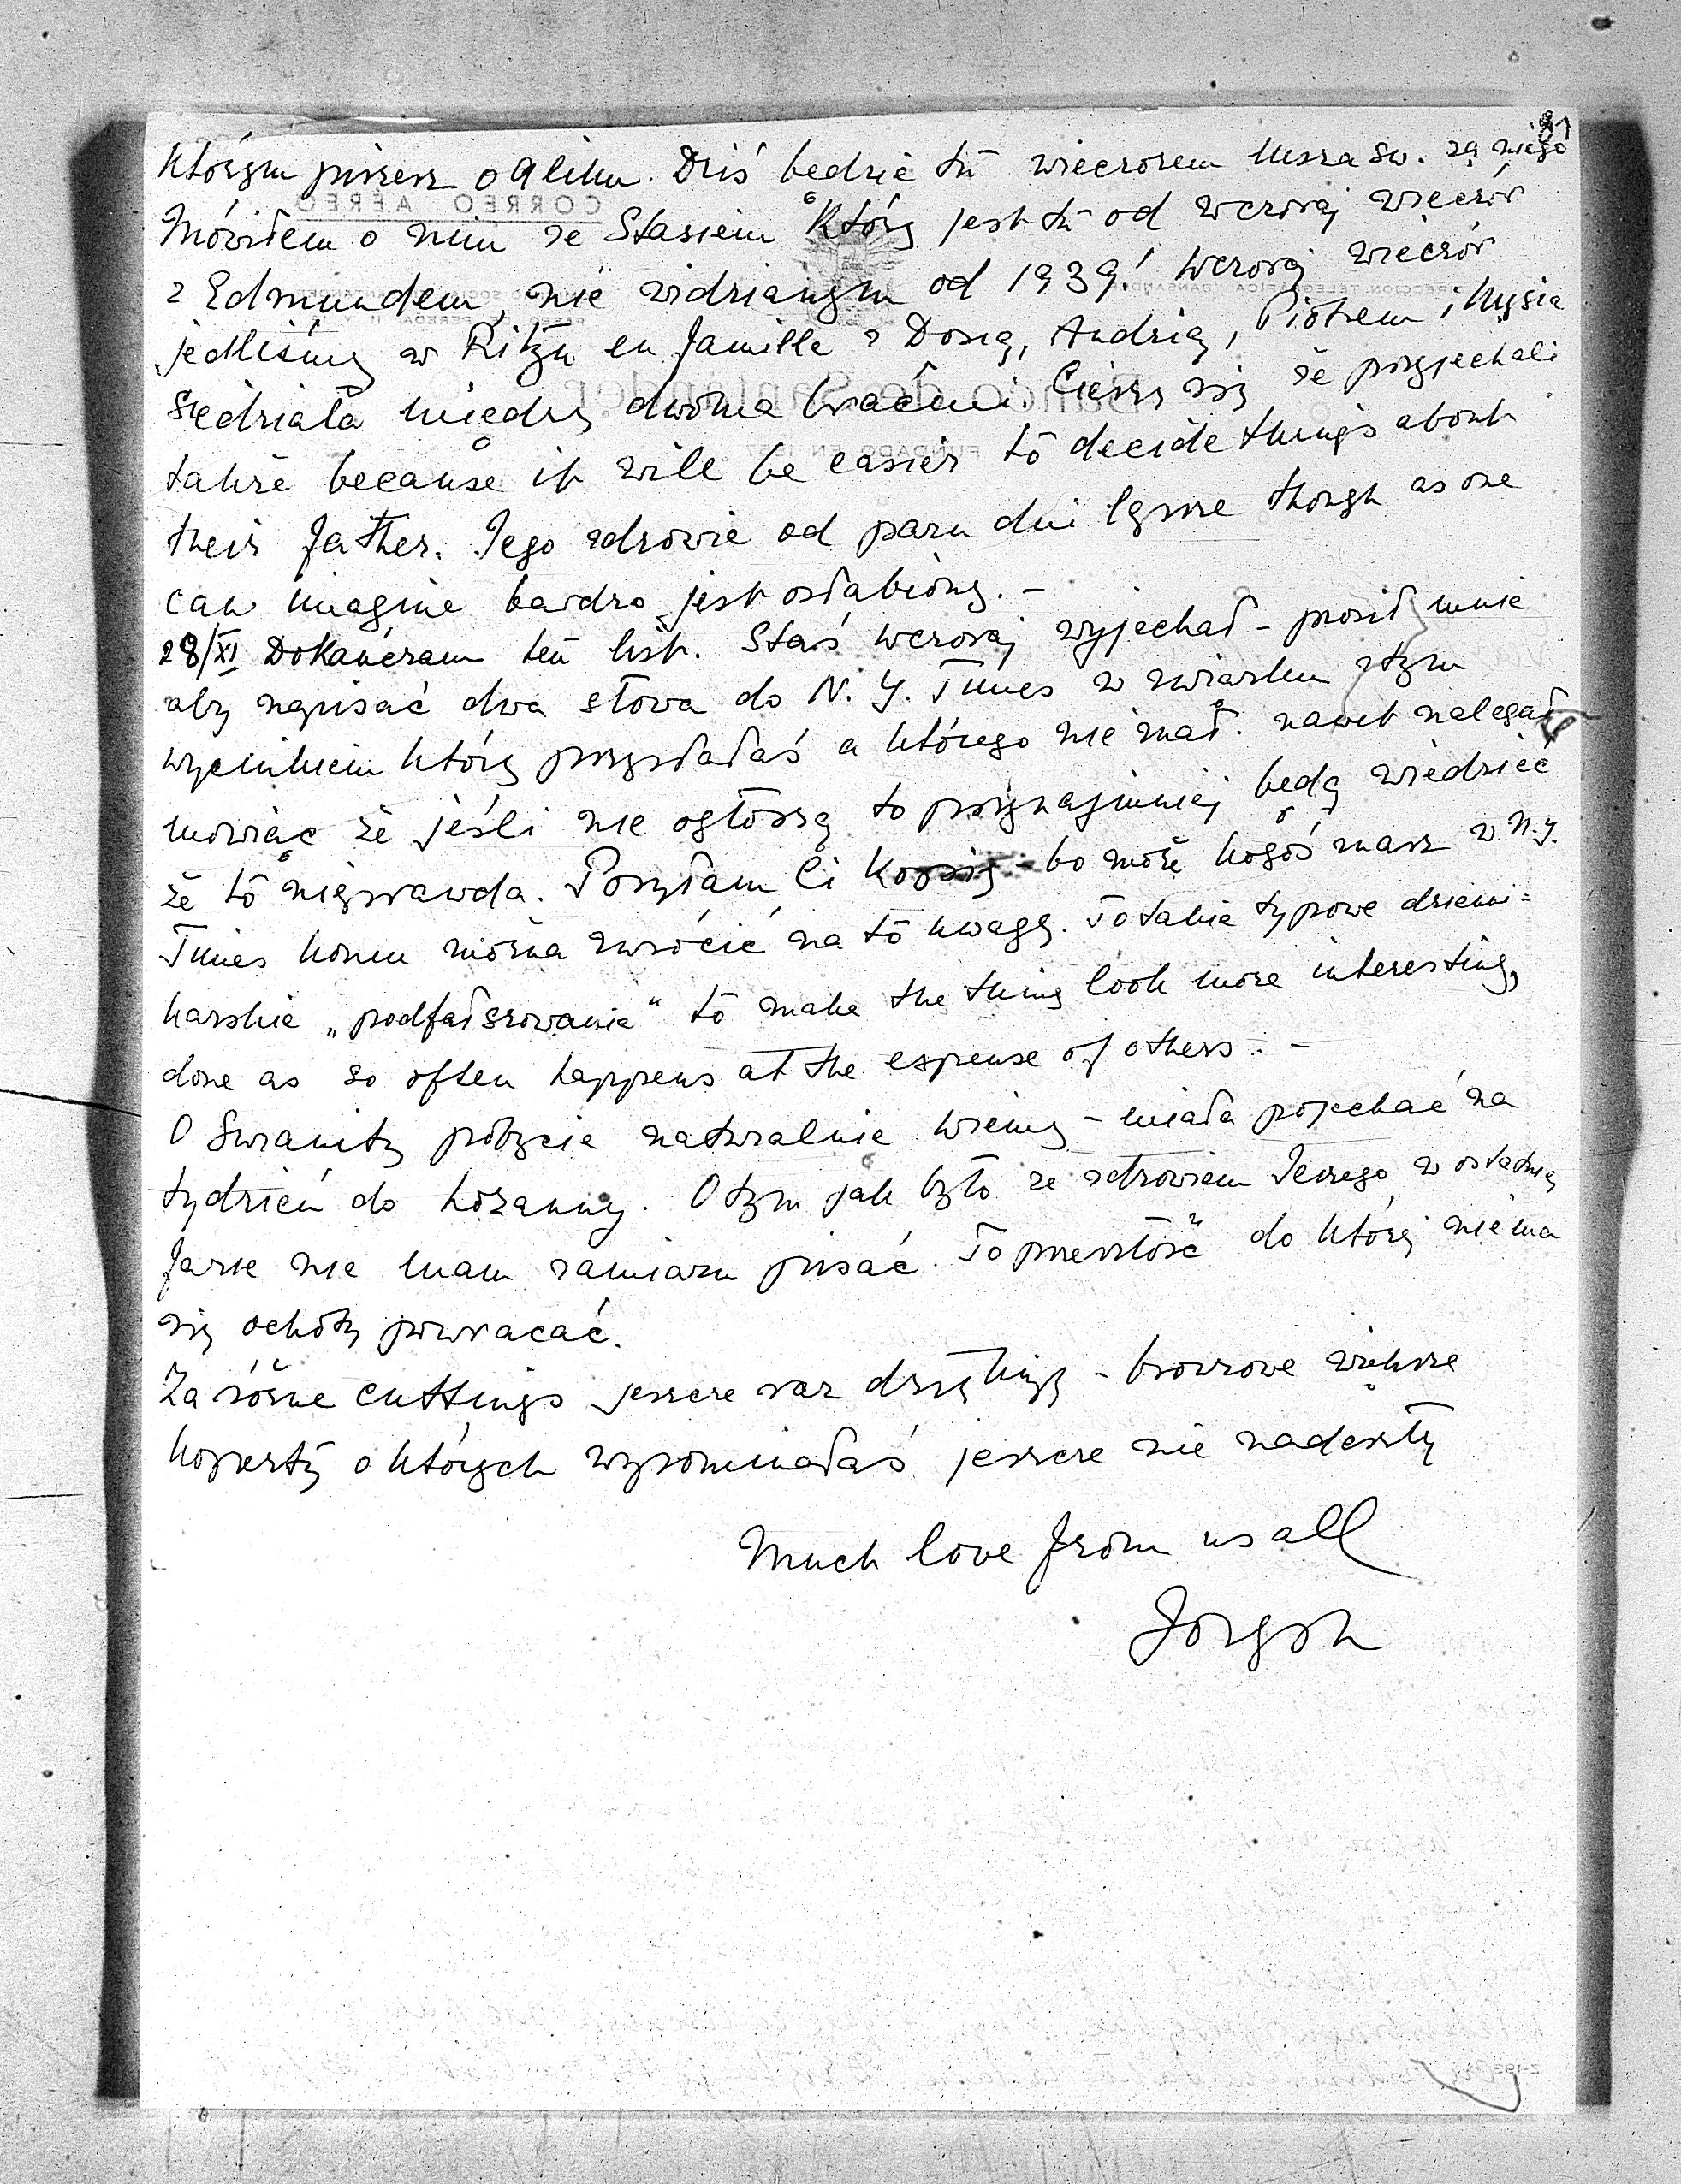 81
którym piszesz o Aliku. Dziś będzie tu wieczorem Msza św. za niego
Mówiłem o nim ze Stasiem który jest tu od wczoraj wieczór
z Edmundem, nie widzianym od 1939! Wczoraj wieczór
jedliśmy w Ritzu en famille z Dosią, Andzią, Piotrem i Mysia
siedziała między dwoma braćmi. Cieszę się że przyjechali
także because it will be easier to decide things about
their father. Jego zdrowie od paru dni lepsze though as one
can imagine bardzo jest osłabiony. -
28/XI Dokańczam ten list. Staś wczoraj wyjechał - prosił mnie
aby napisać dwa słowa do N. Y. Times w związku z tym
wycinkiem który przysłałaś a którego nie znał. nawet nalegał
mówiąc że jeśli nie ogłoszą to przynajmniej będą wiedzieć
że to nieprawda. Posyłam Ci kopię - bo może kogoś znasz w N.Y.
Times komu można zwrócić na to uwagę. To takie typowe dzienni=
karskie „podfałszowanie" to make the thing look more interesting,
done as so often happens at the expense of others. -
O pobycie naturalnie wiemy - miała pojechać na
tydzień do Lozanny. O tym jak było ze zdrowiem Jerzego w ostatniej
fazie nie mam zamiaru pisać. To przeszłość do której nie ma
się ochoty powracać.
Za różne cuttings jeszcze raz dziękuję - brązowe większe
koperty o których wspominałaś jeszcze nie nadeszły
Much love from us all
CORREO AÉREO
Banco de Santander